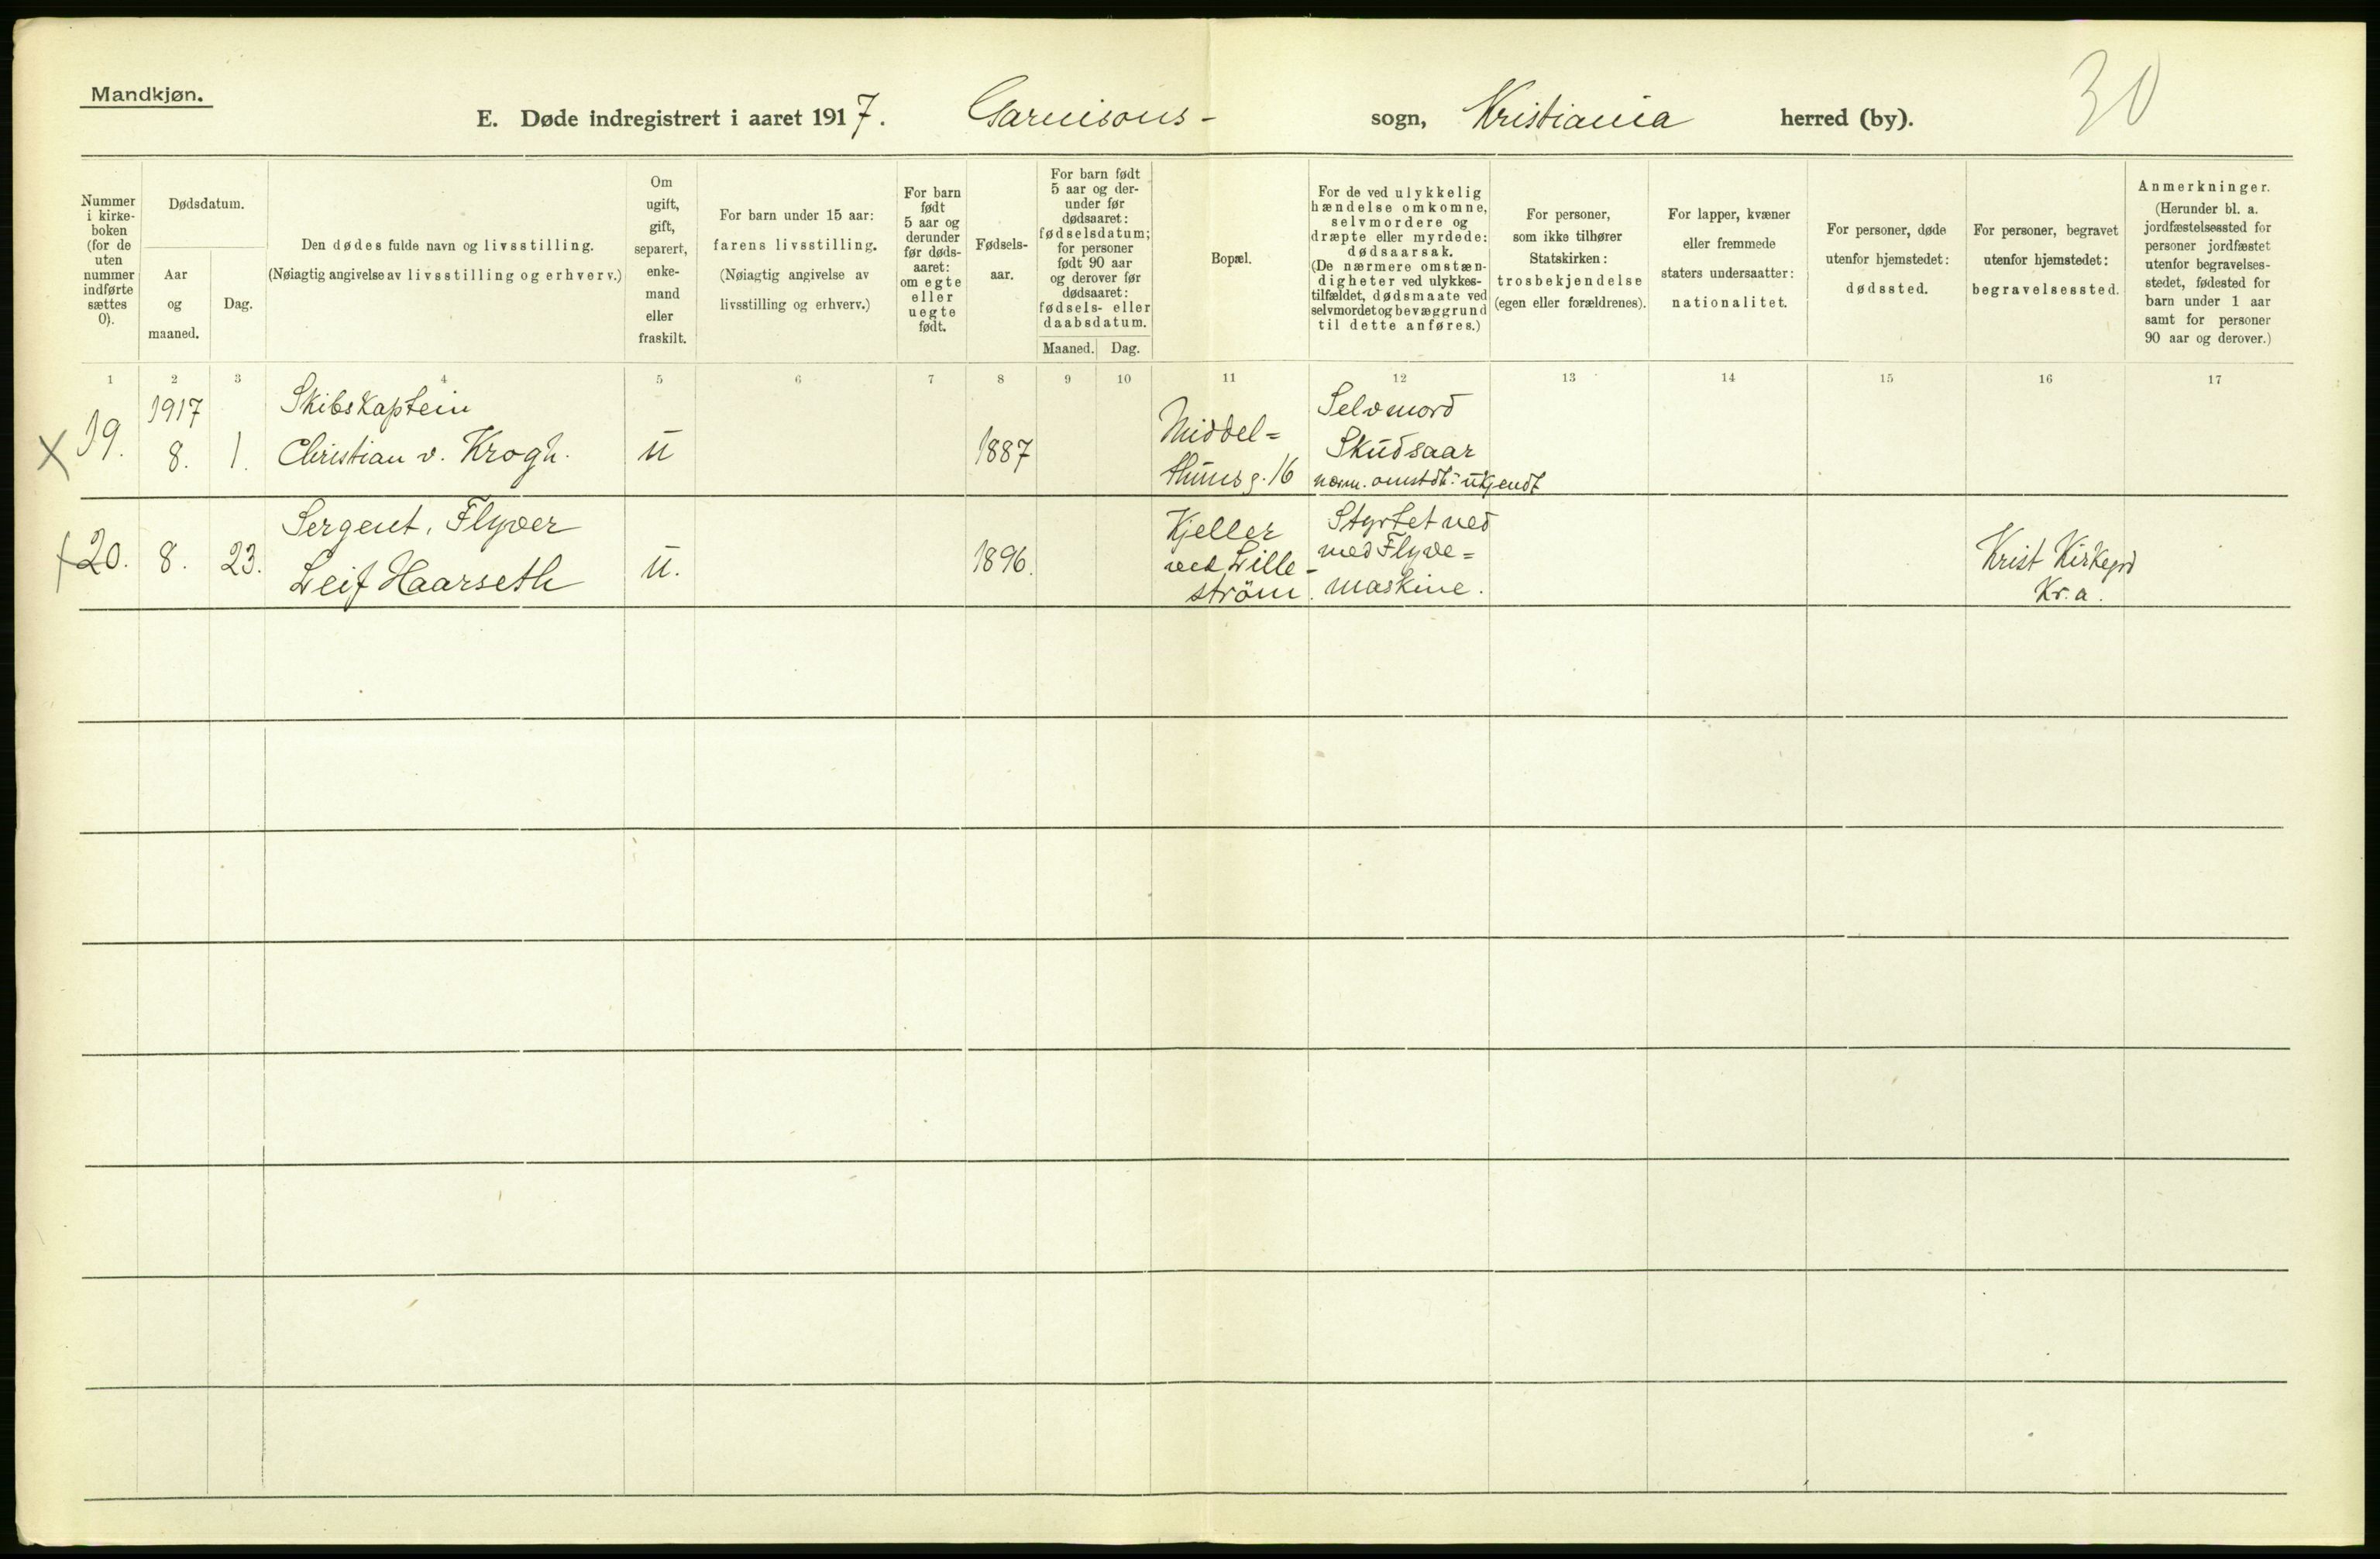 Mandkjøn.
30
E. Døde indregistrert i aaret 1917. Garnisons- sogn, Kristiania herred (by).
Nummer
i kirke-
boken
(for de
uten
nummer
indførte
sættes
0).
Dødsdatum.
Aar
og
maaned.
Dag.
Den dødes fulde navn og livsstilling.
(Nøiagtig angivelse av livsstilling og erhverv.)
Om
ugift,
gift,
separert,
enke-
mand
eller
fraskilt.
For barn under 15 aar:
farens livsstilling.
(Nøiagtig angivelse av
livsstilling og erhverv.)
For barn
født
5 aar og
derunder
før døds-
aaret:
om egte
eller
uegte
født.
Fødsels-
aar.
For barn født
5 aar og der-
under før
dødsaaret:
fødselsdatum;
for personer
født 90 aar
og derover før
dødsaaret:
fødsels- eller
daabsdatum.
Maaned. Dag.
Bopæl.
For de ved ulykkelig
hændelse omkomne,
selvmordere og
dræpte eller myrdede:
dødsaarsak.
(De nærmere omstæn-
digheter ved ulykkes-
tilfældet, dødsmaate ved
selvmordet og bevæggrund
til dette anføres.)
For personer,
som ikke tilhører
Statskirken:
trosbekjendelse
(egen eller forældrenes).
For lapper, kvæner
eller fremmede
staters undersaatter:
nationalitet.
For personer, døde
utenfor hjemstedet:
dødssted.
For personer, begravet
utenfor hjemstedet:
begravelsessted.
Anmerkninger.
(Herunder bl. a.
jordfæstelsessted for
personer jordfæstet
utenfor begravelses-
stedet, fødested for
barn under 1 aar
samt for personer
90 aar og derover.)
1 2 3 4 5 6 7 8 9 10 11 12 13 14 15 16 17
X 19.
1917
8. 1.
Skibskaptein
Christian v. Krogh.
u
1887
Middel=
thuns g. 16
Selvmord
Skudsaar
nærm. omstdh: ukjendt
20. 8. 23.
Sergent, Flyver
Leif Haarseth
u.
1896.
Kjeller
ved Lille-
strøm.
Styrtet ned
med Flyve=
maskine.
Krist Kirkegrd
Kr.a.